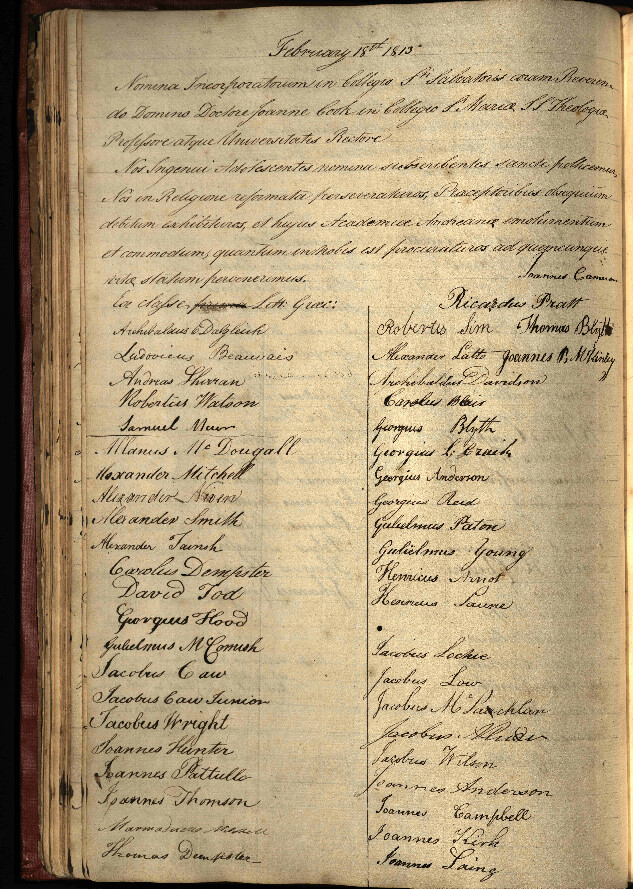 February 18th 1815
Nomina Incorporatorum in Collegio Sti Salvatoris coram Reveren-
do Domino Doctore Joanne Cook in Collegio S. Mariæ S.S. Theologiæ
Professore atque Universitatis Rectore
Nos Ingenui Adolescentes nomina subscribentes sancte pollicemur,
Nos in Religione reformata perseveraturos, Præceptoribus obsequium
debitum exhibituros, et hujus Academiæ Andreanæ emolumentum
et commodum, quantum in nobis est procuraturos ad quemcunque
vitæ statum pervenerimus.
Ex classe Litt: Græc:
Archibaldus Dalgleish
Ludovicus Beauvais
Andreas
Robertus Watson
Samuel Muir
Allanus McDougall
Alexander Mitchell
Alexander Niven
Alexander Smith
Alexander Tainsh
Carolus Dempster
David Tod
Georgius Hood
Gulielmus McComish
Jacobus Caw
Jacobus Caw Junior
Jacobus Wright
Joannes Hunter
Joannes Pattullo
Joannes Thomson
Thomas Dempster
Joannes Cameron
Ricardus Pratt
Robertus Sim Thomas Blyth
Alexander Latto Joannes McKinley
Archibaldus Davidson
Carolus Blair
Georgius Blyth
Georgius
Georgius Anderson
Georgius Reid
Gulielmus Paton
Gulielmus Young
Henricus Arnot
Henricus
Jacobus Lockie
Jacobus Low
Jacobus McLauchlan
Jacobus
Jacobus Wilson
Joannes Anderson
Joannes Campbell
Joannes Kirk
Joannes Laing